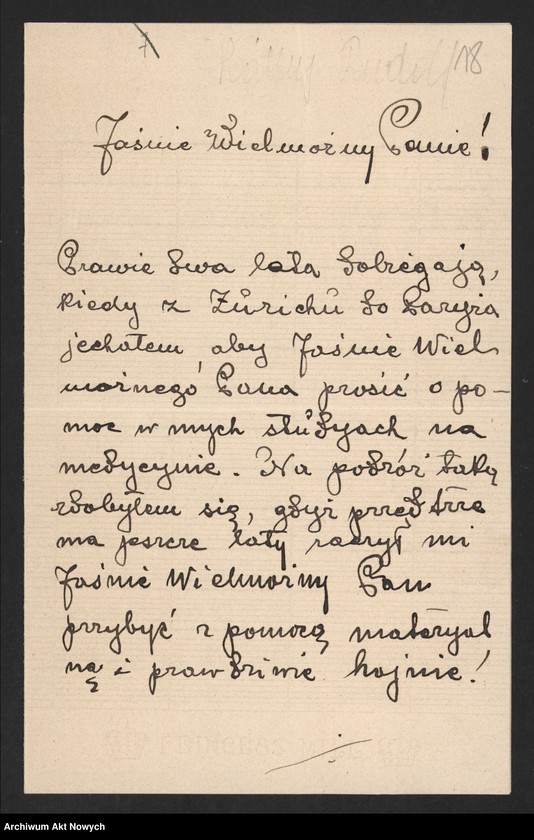 7
Rudolf 18
Jaśnie Wielmożny Panie!
Prawie dwa lata dobiegają,
kiedy z Zürichu do Paryża
jechałem, aby Jaśnie Wiel
możnego Pana prosić o po-
moc w mych studyach na
medycynie. Na podróż taką
zdobyłem się, gdyż przed trze
ma jeszcze laty raczył mi
Jaśnie Wielmożny Pan
przybyć z pomocą materyal
ną i prawdziwie hojnie!
Archiwum Akt Nowych